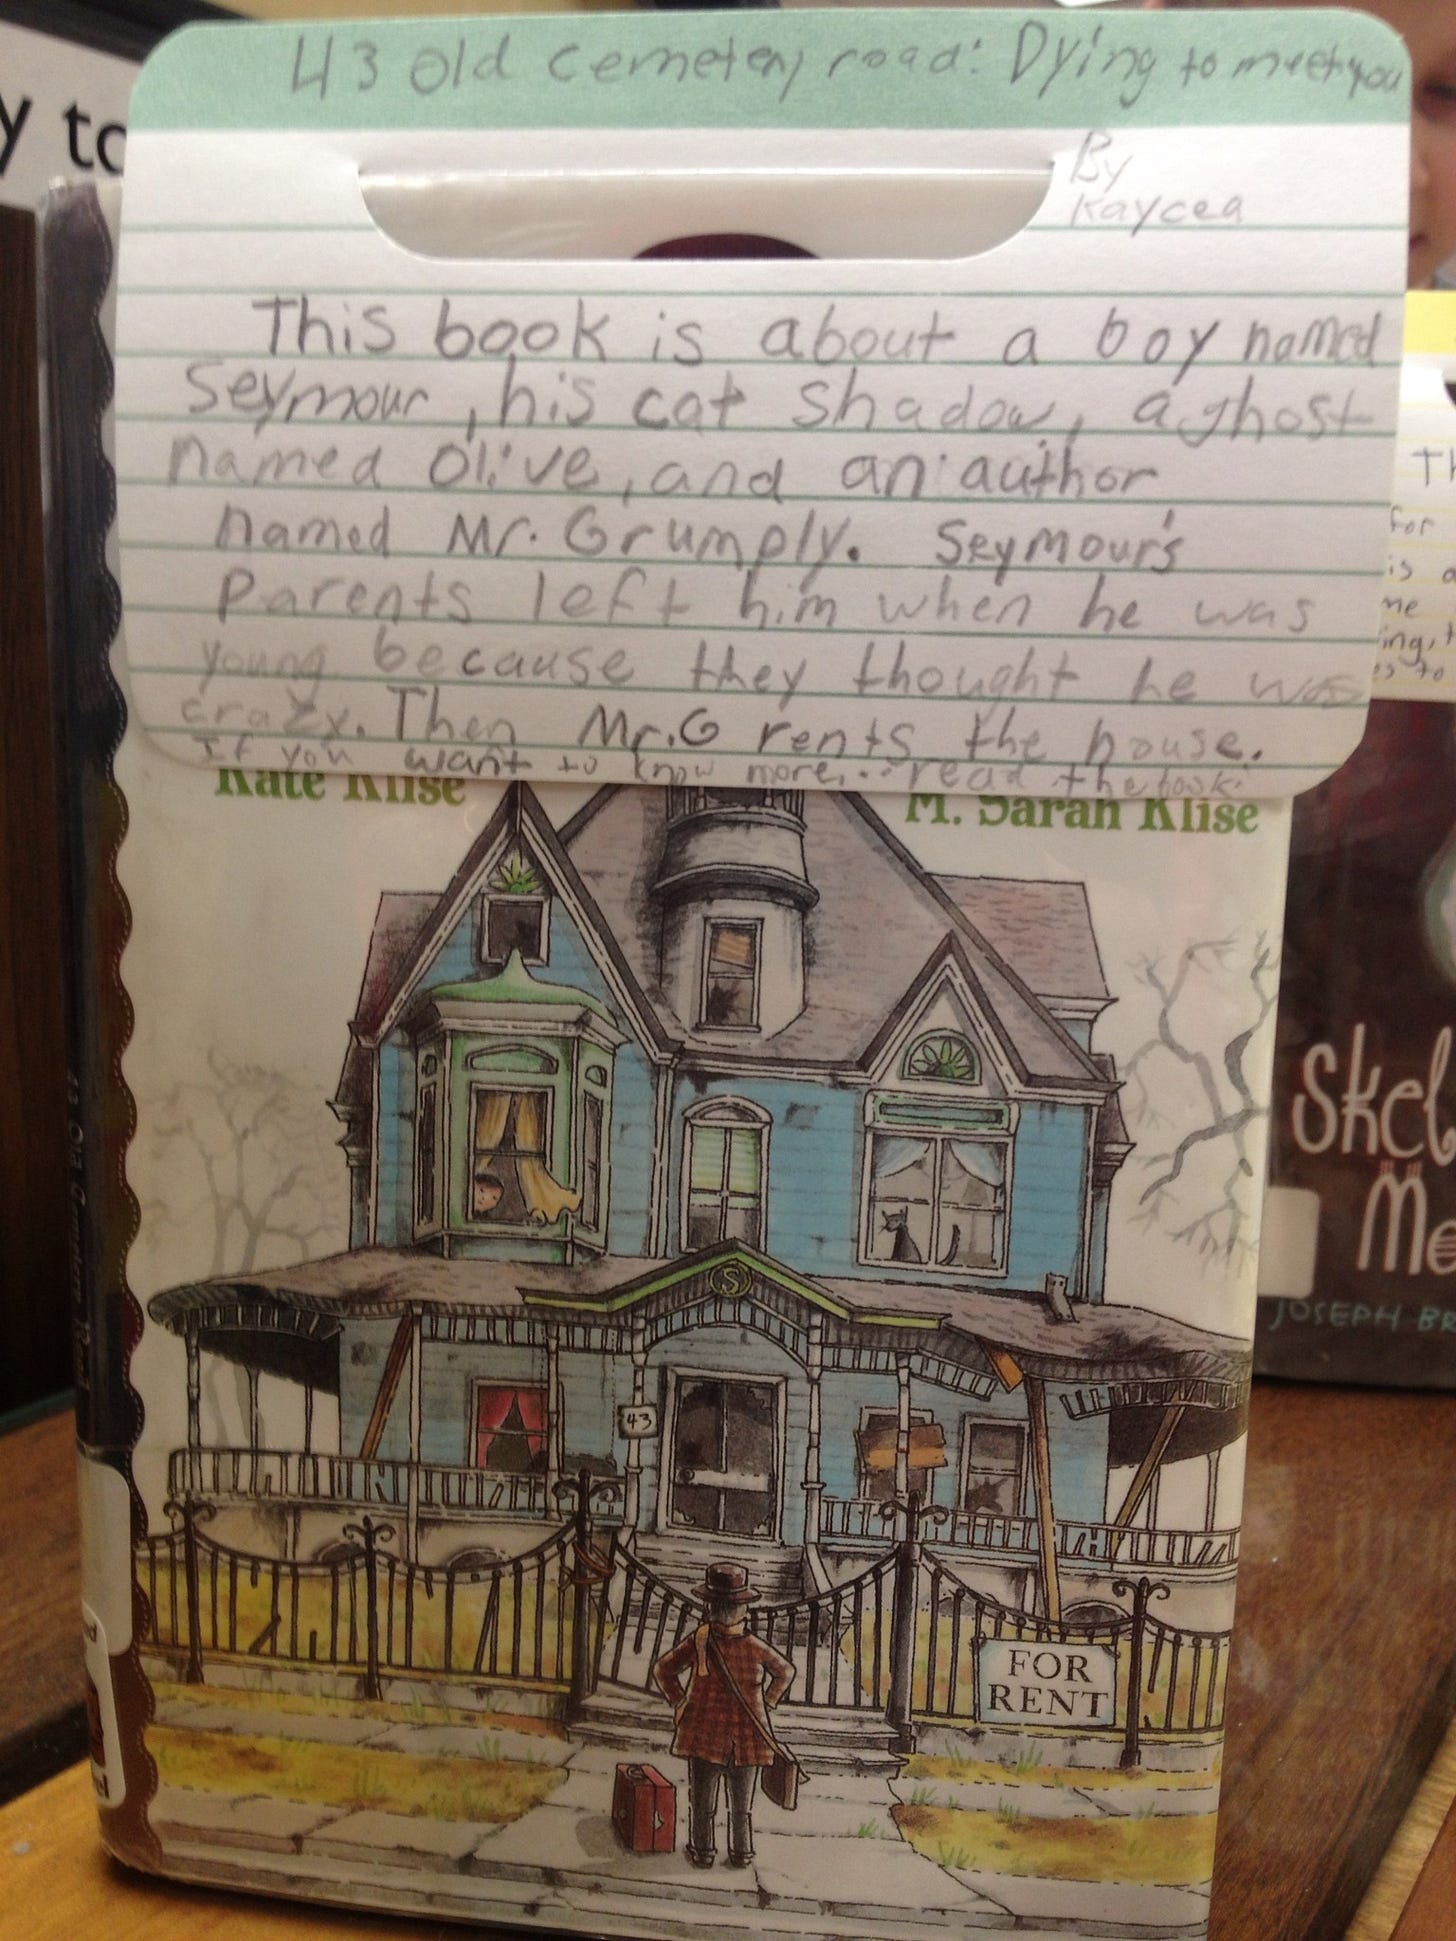 43 old cemetery road: Dying to meet you
By
Kaycea
This book is about a boy named
Seymour, his cat shadow, a ghost
named Olive, and an author
named Mr. Grumply. Seymour's
Parents left him when he was
young because they thought he was
crazy. Then Mr. G rents the house.
If you want to know more... read the book!
Kate Klise
M. Sarah Klise
S
43
FOR
RENT
y to
Th
for
is a
me
ing,
es to
Skel
Me
JOSEPH BR